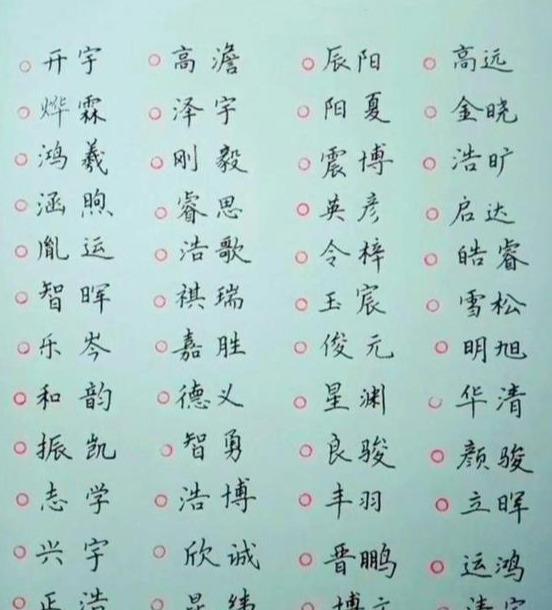 开宇 高澹 辰阳 高远
烨霖 泽宇 阳夏 金晓
鸿羲 刚毅 震博 浩旷
涵煦 睿思 英彦 启达
胤运 浩歌 令梓 皓睿
智晖 祺瑞 玉宸 雪松
乐岑 嘉胜 俊元 明旭
和韵 德义 星渊 华清
振凯 智勇 良骏 颜骏
志学 浩博 丰羽 立晖
兴宇 欣诚 晋鹏 运鸿
正浩 昆纬 博